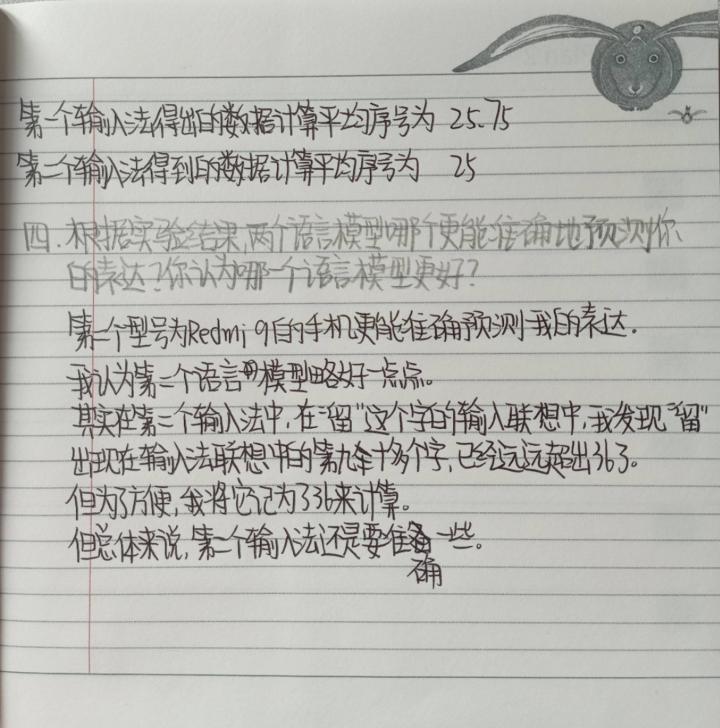 第一个输入法得出的数据计算平均序号为 25.75
第二个输入法得到的数据计算平均序号为 25
四.根据实验结果,两个语言模型哪个更能准确地预测你
的表达?你认为哪一个语言模型更好?
第二个型号为Redmi 9的手机更能准确预测我的表达.
我认为第二个语言的模型略好一点点。
其实在第二个输入法中,在“留”这个字的输入联想中,我发现“留”
出现在输入法联想中的第九余十多个字,已经远远超出36了。
但为了方便,我将它记为36来计算。
但总体来说,第二个输入法还是要准确一些。